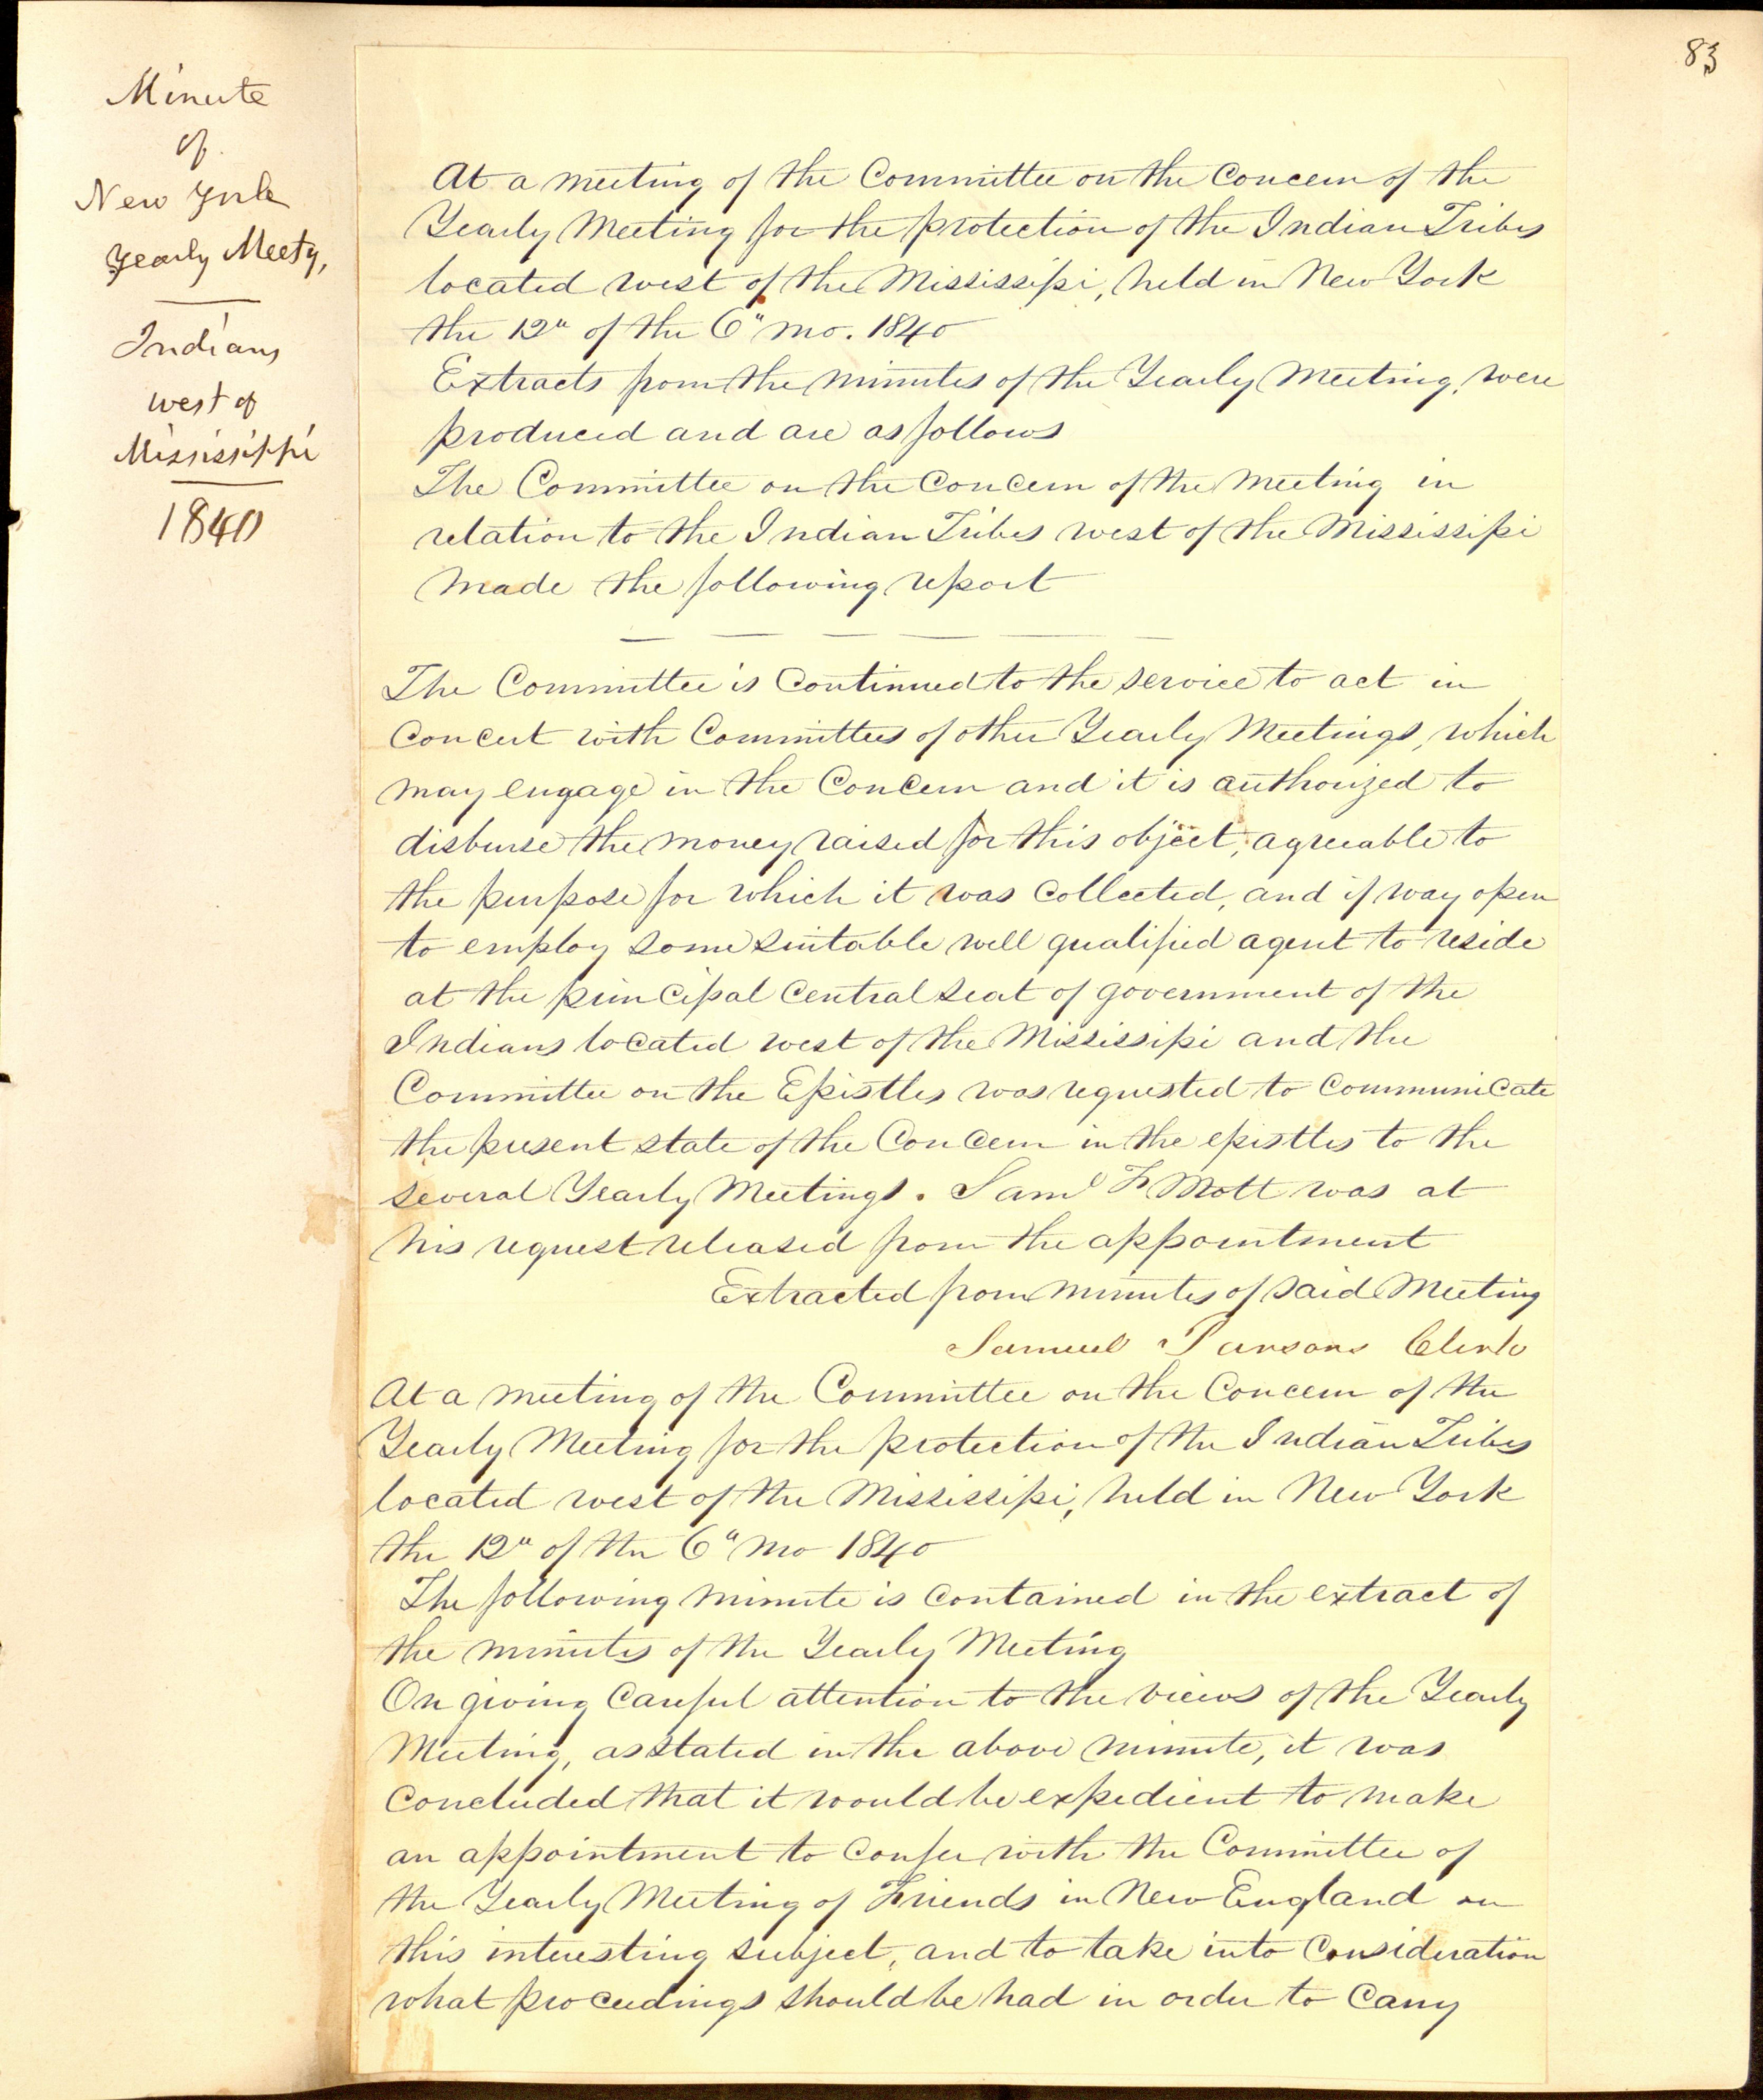 83
Minute
of
New York
Yearly Meetg,
Indians
west of
Mississippi
1840
At a meeting of the Committee on the Concern of the
Yearly Meeting for the protection of the Indian Tribes
located west of the Mississipi, held in New York
the 12" of the 6" mo. 1840
Extracts from the minutes of the Yearly Meeting, were
produced and are as follows
The Committee on the Concern of the Meeting in
relation to the Indian Tribes west of the Mississipi
made the following report
The Committee is Continued to the service to act in
Concert with Committees of other Yearly Meetings, which
may engage in the Concern and it is authorized to
disburse the money raised for this object, agreeable to
the purpose for which it was Collected, and if way open
to employ some suitable well qualified agent to reside
at the principal Central seat of government of the
Indians located west of the Mississipi and the
Committee on the Epistles was requested to Communicate
the present state of the Concern in the epistles to the
several Yearly Meetings. Saml F Mott was at
his request released from the appointment
Extracted from minutes of said Meeting
Samuel Parsons Clerk
At a meeting of the Committee on the Concern of the
Yearly Meeting for the protection of the Indian Tribes
located west of the Mississipi, held in New York
the 12" of the 6" mo 1840
The following minute is Contained in the extract of
the minutes of the Yearly Meeting
On giving Careful attention to the views of the Yearly
Meeting, as stated in the above minute, it was
Concluded that it would be expedient to make
an appointment to Confer with the Committee of
the Yearly Meeting of Friends in New England on
this interesting subject, and to take into Consideration
what proceedings should be had in order to Carry